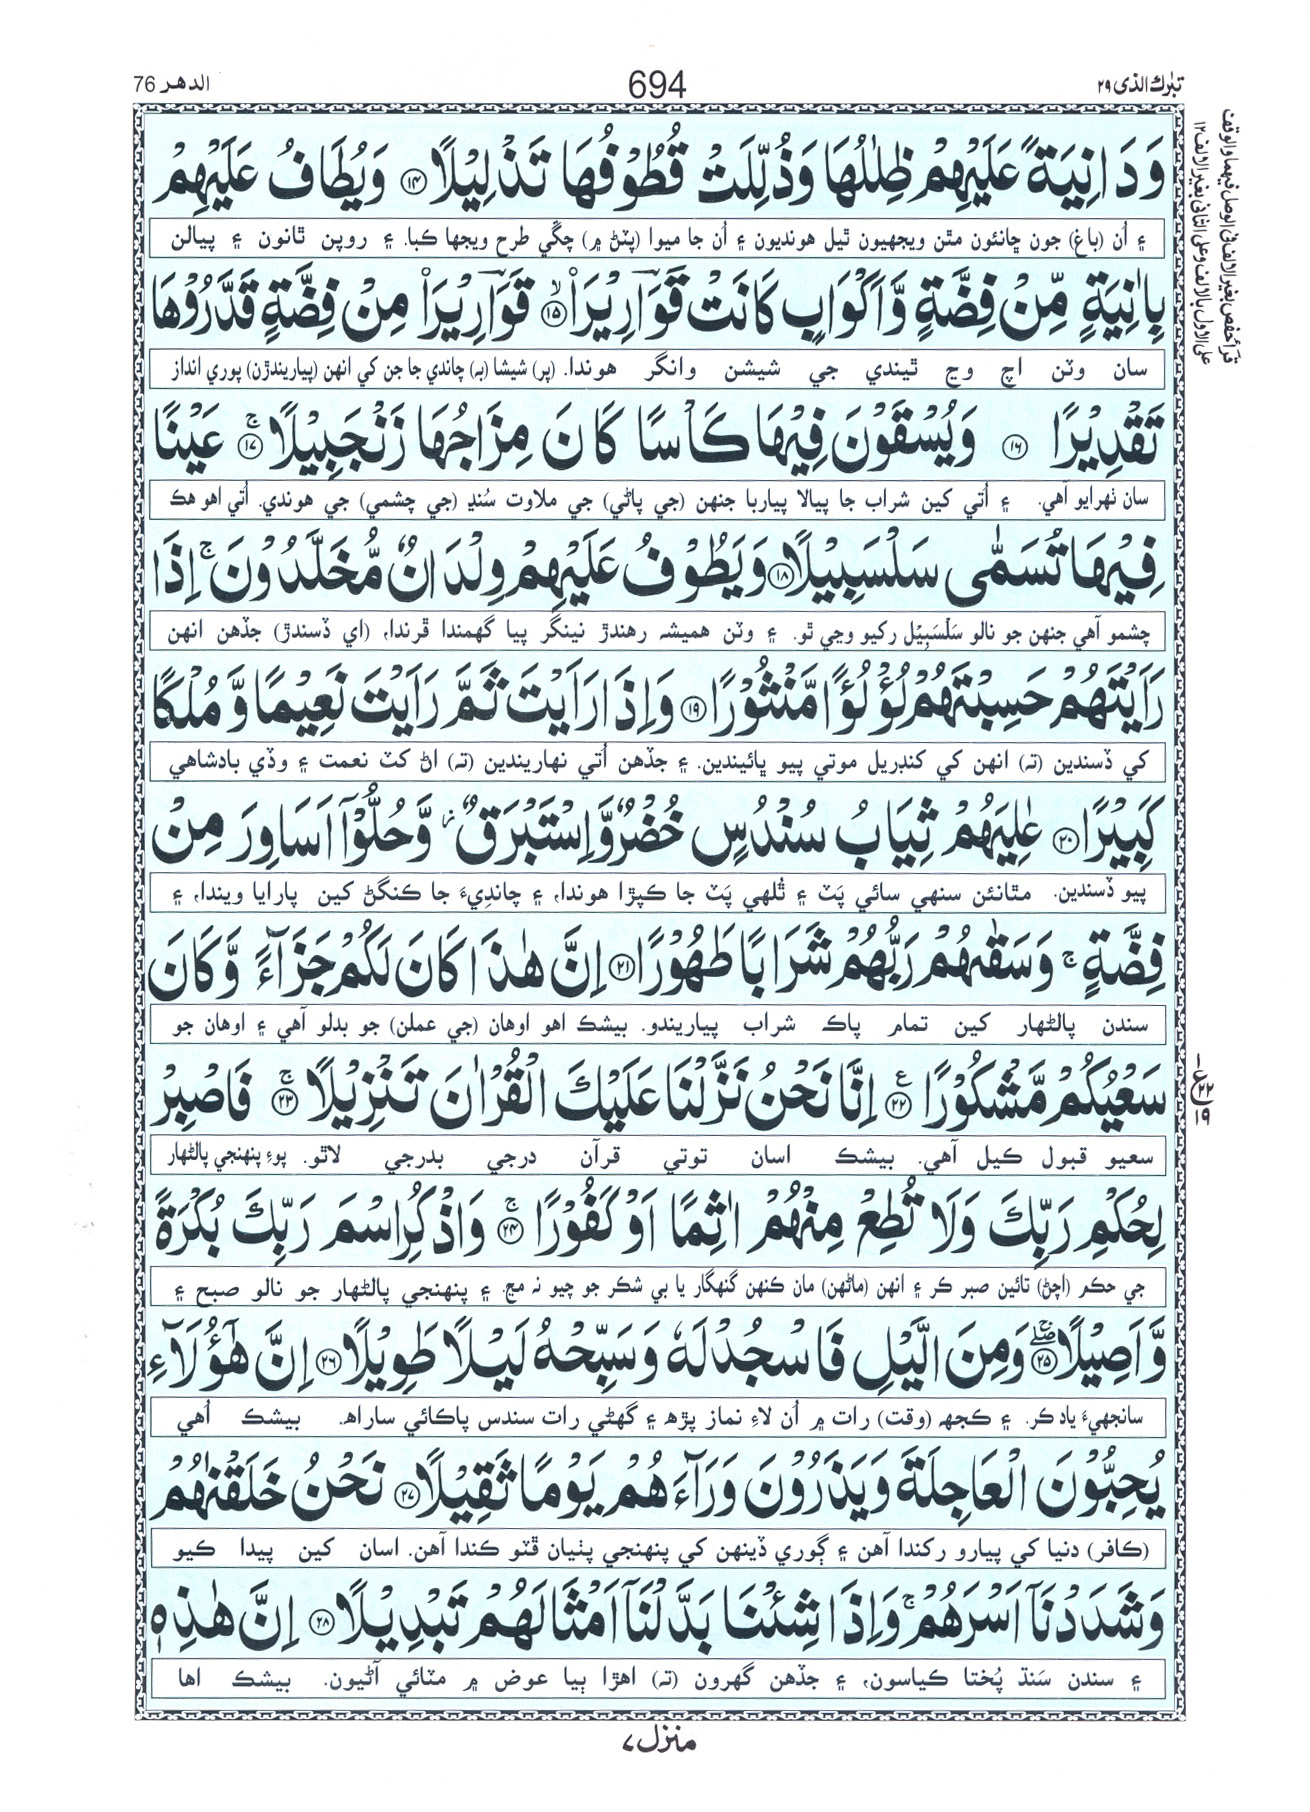 تبٰرك الذى ٢٩
694
الدهر 76
وَدَانِيَةً عَلَيْهِمْ ظِلٰلُهَا وَذُلِّلَتْ قُطُوْفُهَا تَذْلِيْلًا ۝١٤ وَيُطَافُ عَلَيْهِمْ
۽ اُن (باغ) جون ڇانئون مٿن ويجھيون ٿيل هونديون ۽ اُن جا ميوا (پٽڻ ۾) چڱي طرح ويجھا ڪبا. ۽ روپن ٿانون ۽ پيالن
بِاٰنِيَةٍ مِّنْ فِضَّةٍ وَّاَكْوَابٍ كَانَتْ قَوَارِيْرَا۠ ۝١٥ۙ قَوَارِيْرَا۠ مِنْ فِضَّةٍ قَدَّرُوْهَا
سان وٽن اچ وڃ ٿيندي جي شيشن وانگر هوندا. (پر) شيشا (به) چاندي جا جن کي انهن (پياريندڙن) پوري انداز
تَقْدِيْرًا ۝١٦ وَيُسْقَوْنَ فِيْهَا كَاْسًا كَانَ مِزَاجُهَا زَنْجَبِيْلًا ۝١٧ۚ عَيْنًا
سان ٺهرايو آهي. ۽ اُتي کين شراب جا پيالا پياربا جنهن (جي پاڻي) جي ملاوت سُنڍ (جي چشمي) جي هوندي. اُتي اهو هڪ
فِيْهَا تُسَمّٰى سَلْسَبِيْلًا ۝١٨ وَيَطُوْفُ عَلَيْهِمْ وِلْدَانٌ مُّخَلَّدُوْنَ ۚ اِذَا
چشمو آهي جنهن جو نالو سَلْسَبِيْل رکيو وڃي ٿو. ۽ وٽن هميشہ رهندڙ نينگر پيا گهمندا ڦرندا، (اي ڏسندڙ) جڏهن انهن
رَاَيْتَهُمْ حَسِبْتَهُمْ لُؤْلُؤًا مَّنْثُوْرًا ۝١٩ وَاِذَا رَاَيْتَ ثَمَّ رَاَيْتَ نَعِيْمًا وَّمُلْكًا
کي ڏسندين (تہ) انهن کي کنڊريل موتي پيو ڀائيندين. ۽ جڏهن اُتي نهاريندين (تہ) اڻ کٽ نعمت ۽ وڏي بادشاهي
كَبِيْرًا ۝٢٠ عٰلِيَهُمْ ثِيَابُ سُنْدُسٍ خُضْرٌ وَّاِسْتَبْرَقٌ ۡ وَّحُلُّوْٓا اَسَاوِرَ مِنْ
پيو ڏسندين. مٿانئن سنهي سائي پَٽ ۽ ٿُلهي پَٽ جا ڪپڙا هوندا، ۽ چانديءَ جا ڪنگڻ کين پارايا ويندا، ۽
فِضَّةٍ ۚ وَسَقٰىهُمْ رَبُّهُمْ شَرَابًا طَهُوْرًا ۝٢١ اِنَّ هٰذَا كَانَ لَكُمْ جَزَآءً وَّكَانَ
سندن پالڻهار کين تمام پاڪ شراب پياريندو. بيشڪ اهو اوهان (جي عملن) جو بدلو آهي ۽ اوهان جو
سَعْيُكُمْ مَّشْكُوْرًا ۝٢٢ع اِنَّا نَحْنُ نَزَّلْنَا عَلَيْكَ الْقُرْاٰنَ تَنْزِيْلًا ۝٢٣ۚ فَاصْبِرْ
سعيو قبول ڪيل آهي. بيشڪ اسان توتي قرآن درجي بدرجي لاٿو. پوءِ پنهنجي پالڻهار
لِحُكْمِ رَبِّكَ وَلَا تُطِعْ مِنْهُمْ اٰثِمًا اَوْ كَفُوْرًا ۝٢٤ۚ وَاذْكُرِ اسْمَ رَبِّكَ بُكْرَةً
جي حڪم (اچڻ) تائين صبر ڪر ۽ انهن (ماڻهن) مان ڪنهن گنهگار يا بي شڪر جو چيو نہ مڃ. ۽ پنهنجي پالڻهار جو نالو صبح ۽
وَّاَصِيْلًا ۝٢٥ۖۚ وَمِنَ الَّيْلِ فَاسْجُدْ لَهٗ وَسَبِّحْهُ لَيْلًا طَوِيْلًا ۝٢٦ اِنَّ هٰٓؤُلَآءِ
سانجھيءَ ياد ڪر. ۽ ڪجھہ (وقت) رات ۾ اُن لاءِ نماز پڙھ ۽ گھڻي رات سندس پاڪائي ساراھ. بيشڪ اُهي
يُحِبُّوْنَ الْعَاجِلَةَ وَيَذَرُوْنَ وَرَآءَهُمْ يَوْمًا ثَقِيْلًا ۝٢٧ نَحْنُ خَلَقْنٰهُمْ
(ڪافر) دنيا کي پيارو رکندا آهن ۽ ڳوري ڏينهن کي پنهنجي پٺيان ڦٽو ڪندا آهن. اسان کين پيدا ڪيو
وَشَدَدْنَآ اَسْرَهُمْ ۚ وَاِذَا شِئْنَا بَدَّلْنَآ اَمْثَالَهُمْ تَبْدِيْلًا ۝٢٨ اِنَّ هٰذِهٖ
۽ سندن سَنڌ پُختا ڪياسون، ۽ جڏهن گهرون (تہ) اهڙا ٻيا عوض ۾ مٽائي آڻيون. بيشڪ اها
منزل ٧
قرأ حفص بغير الالف فى الوصل فيهما والوقف
على الاول بالالف وعلى الثانى بغير الالف ١٢